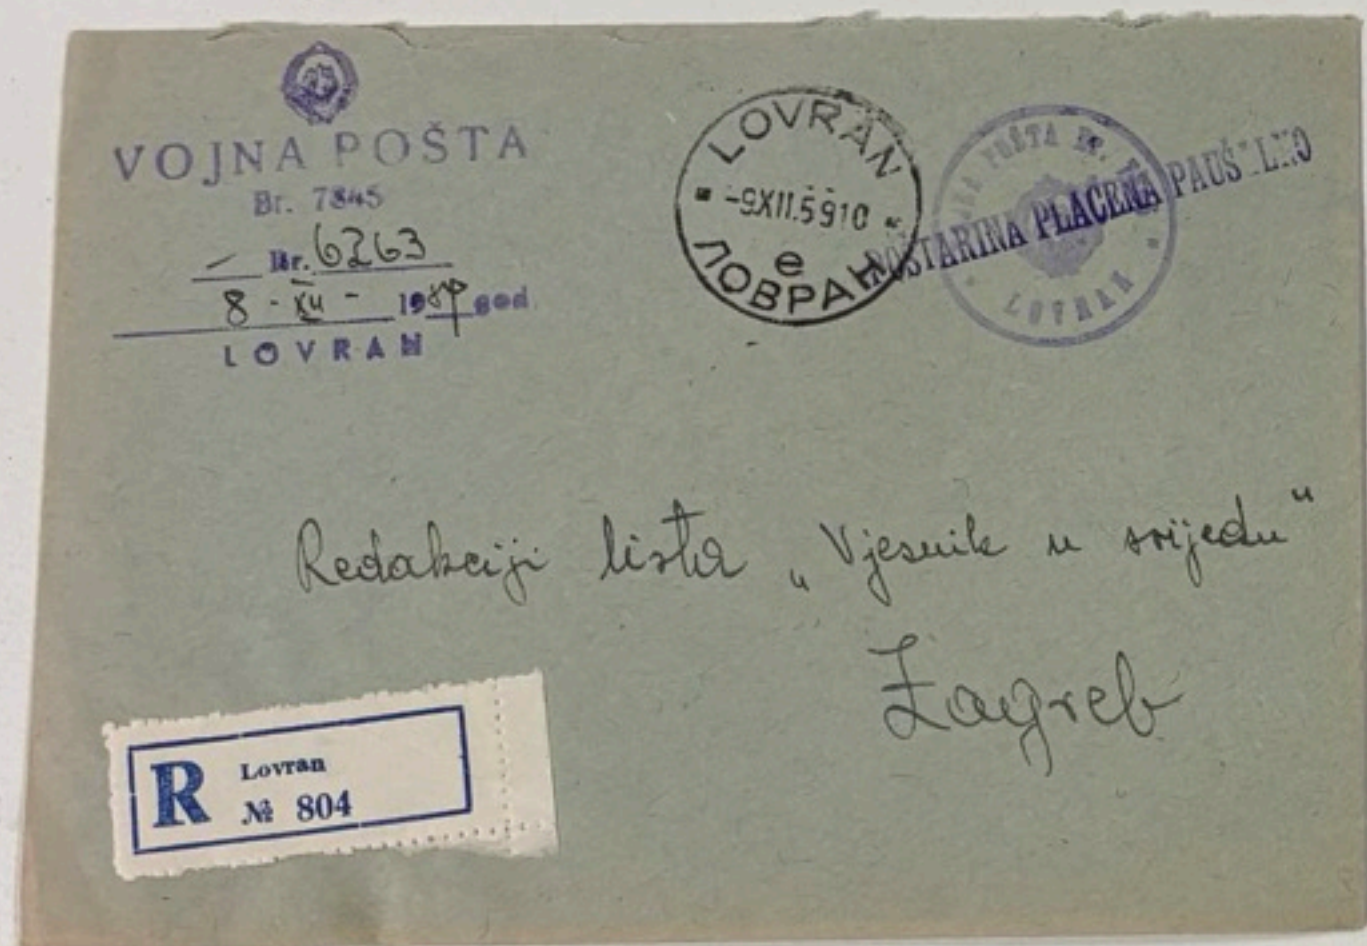 VOJNA POŠTA
Br. 7845
— Br. 6263
8 - XII - 1959 god.
LOVRAN
LOVRAN
-9.XII.59 10
e
ЛОВРАН
POŠTA BR.
LOVRAN
POŠTARINA PLAĆENA PAUŠALNO
Redakciji lista „Vjesnik u srijedu"
Zagreb
R Lovran
№ 804